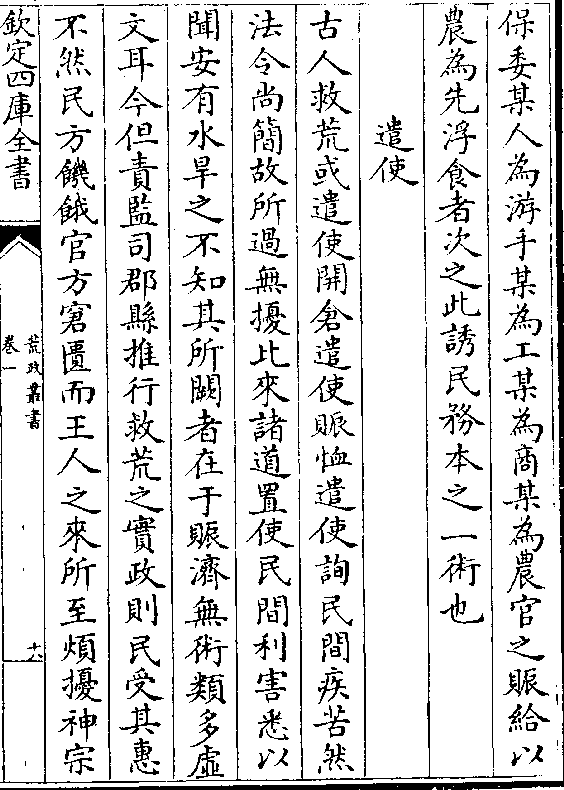 保委某人為游手某為工某為商某為農官之賑給以
農為先浮食者次之此誘民務本之一術也
遣使
古人救荒或遣使開倉遣使賑恤遣使詢民間疾苦然
法令尚簡故所過無擾比來諸道置使民間利害悉以
聞安有水旱之不知其所闕者在于賑濟無術類多虛
文耳今但責監司郡縣推行救荒之實政則民受其惠
不然民方饑餓官方窘匱而王人之來所至煩擾神宗
欽定四庫全書
荒政叢書
卷一